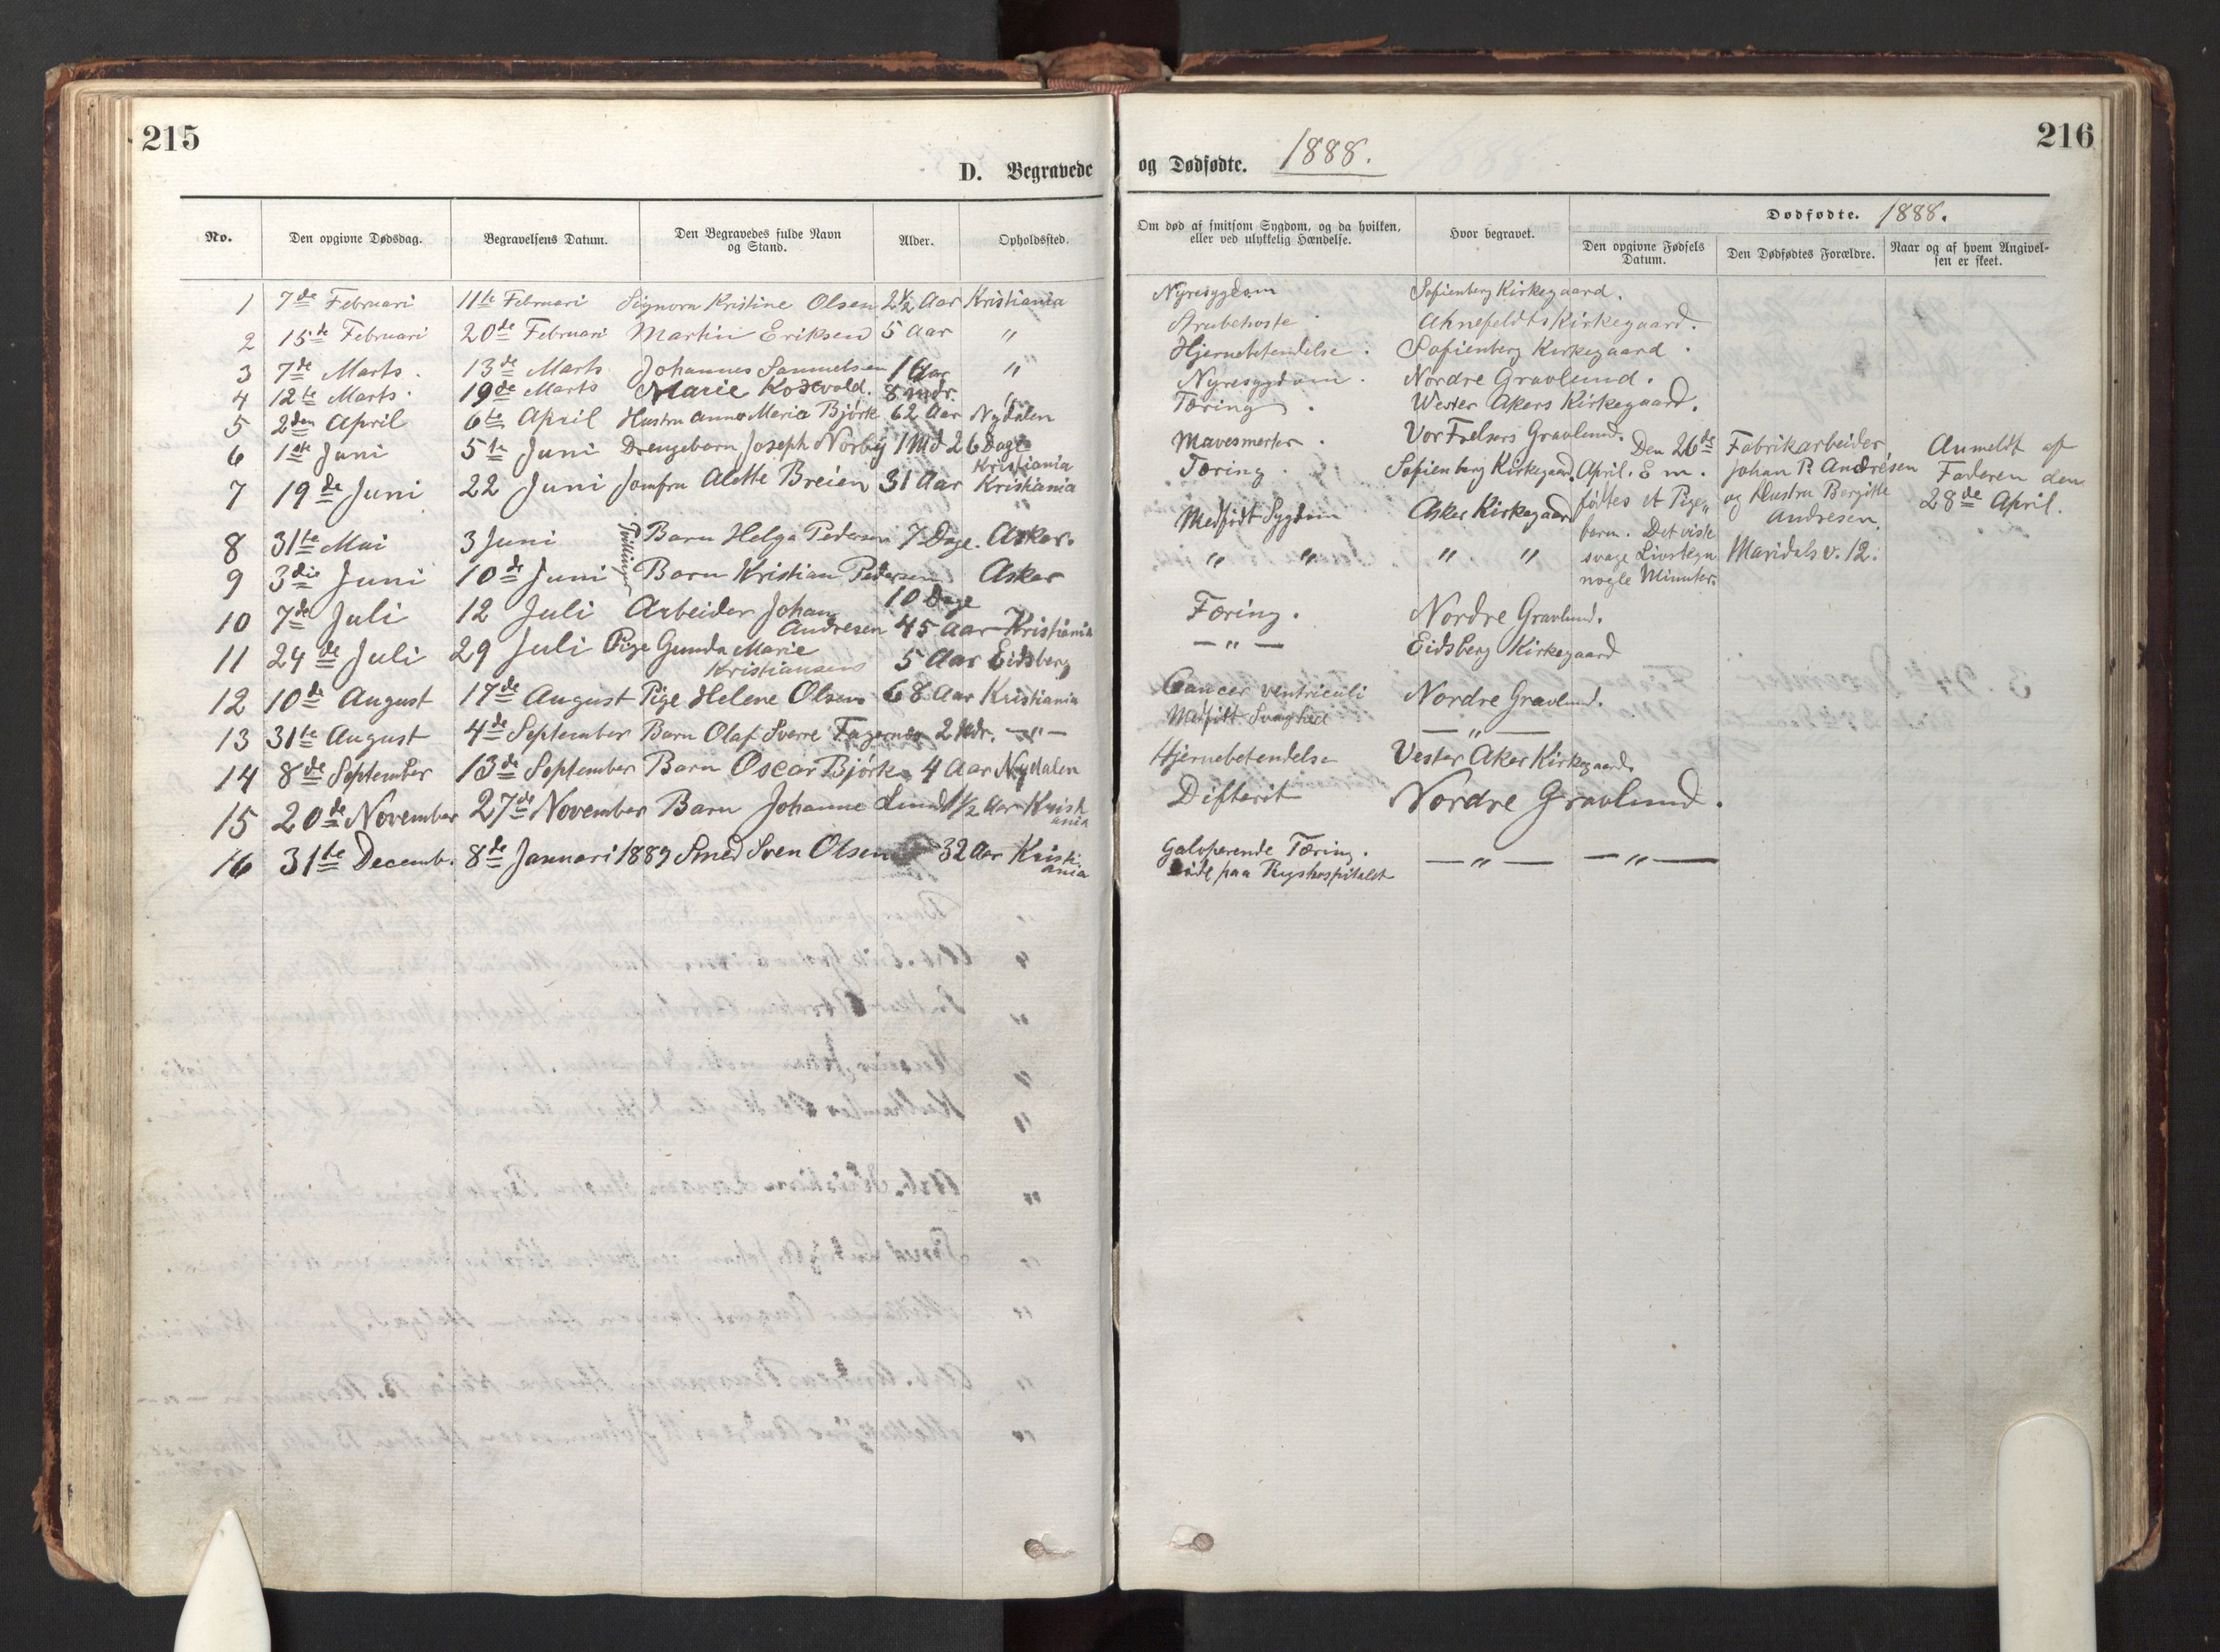 215
D. Begravede
No.
Den opgivne Dødsdag.
Begravelsens Datum.
Den Begravedes fulde Navn
og Stand.
Alder.
Opholdssted.
1 7de Februari 11te Februari Signora Kristine Olsen 2½ Aar Kristiania
2 15de Februari 20de Februari Martin Eriksen 5 Aar "
3 7de Marts. 13de Marts Johannes Samuelsen 1 Aar "
4 12te Marts. 19de Marts Marie 8 mdr. "
5 2den April 6te April Hustru Anna Maria Bjørk 62 Aar Nydalen
6 1ste Juni 5te Juni Drengebarn Joseph Norby 1 Md 26 Dage
Kristiania
7 19de Juni 22 Juni Jomfru Alette Breien 31 Aar Kristiania
8 31te Mai 3 Juni Tvillinger Barn Helga Pedersen 7 Dage. Asker.
9 3die Juni 10de Juni Barn Kristian Pedersen Asker
10 Dage
10 7de Juli 12 Juli Arbeider Johan
Andresen 45 Aar Kristiania
11 24de Juli 29 Juli Pige Gunda Marie
Kristiansens 5 Aar Eidsberg
12 10de August 17de August Pige Helene Olsen 68 Aar Kristiania
13 31te August 4de September Barn Olaf Sverre Fagernes 2 Mdr. — " —
14 8de September 13de September Barn Oscar Bjørk 4 Aar Nydalen
15 20de November 27de November Barn Johanne Lund 1½ Aar Krist
ania
16 31te Decemb. 8de Januari 1889 Smed Sven Olsen 32 Aar Kristi
ania
216
og Dødfødte. 1888.
Om død af smitsom Sygdom, og da hvilken,
eller ved ulykkelig Hændelse.
Hvor begravet.
Dødfødte. 1888.
Den opgivne Fødsels
Datum.
Den Dødfødtes Forældre.
Naar og af hvem Angivel-
sen er skeet.
Nyresygdom Sofienberg Kirkegaard.
Strubehoste Ahnefeldts Kirkegaard.
Hjernebetendelse. Sofienberg Kirkegaard.
Nyresygdom. Nordre Gravlund.
Tæring. Wester Akers Kirkegaard.
Mavesmerter. Vor Frelsers Gravlund.
Tæring. Sofienberg Kirkegaard.
Medfødt Sygdom Asker Kirkegaard
" " " "
Den 26de
April. E m.
fødtes et Pige„
barn. Det viste
svage Livstegn
nogle Minuter.
Fabrikarbeider
Johan P. Andrésen
og Hustru Bergitte
Andresen.
Maridalsv. 12.
Anmeldt af
Faderen den
28de April.
Tæring. Nordre Gravlund.
— " — Eidsberg Kirkegaard
Cancer ventriculi Nordre Gravlund.
Medfødt Svaghed — " —
Hjernebetendelse Vester Aker Kirkegaard.
Difterit Nordre Gravlund.
Galoperende Tæring.
Døde paa Rigshospitalet — " — — " —